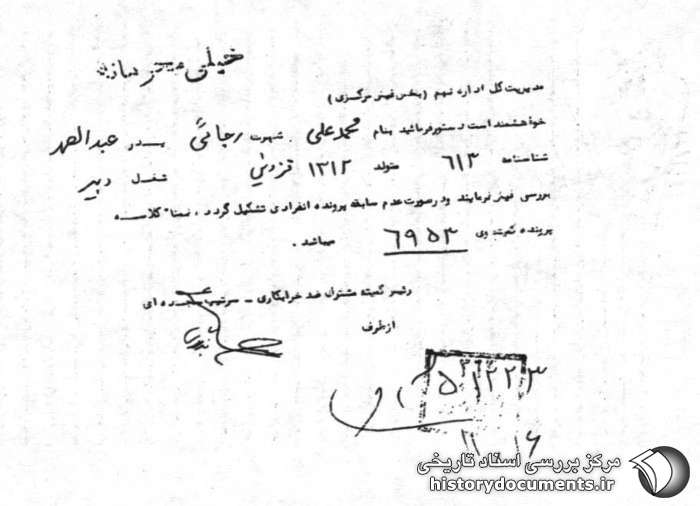 خیلی محرمانه
مدیریت کل اداره نهم (بخش فیش مرکزی)
خواهشمند است دستور فرمائید بنام محمد علی شهرت رجائی پدر عبدالصمد
شناسنامه ۶۱۳ متولد ۱۳۱۲ قزوین شغل دبیر
بررسی فیش نمایند و در صورت عدم سابقه پرونده انفرادی تشکیل گردد، ضمنا" کلاسه
پرونده ثبت وی ۶۹۵۳ میباشد.
رئیس کمیته مشترک ضد خرابکاری - سرتیپ سجده ای
از طرف
مرکز بررسی اسناد تاریخی
historydocuments.ir